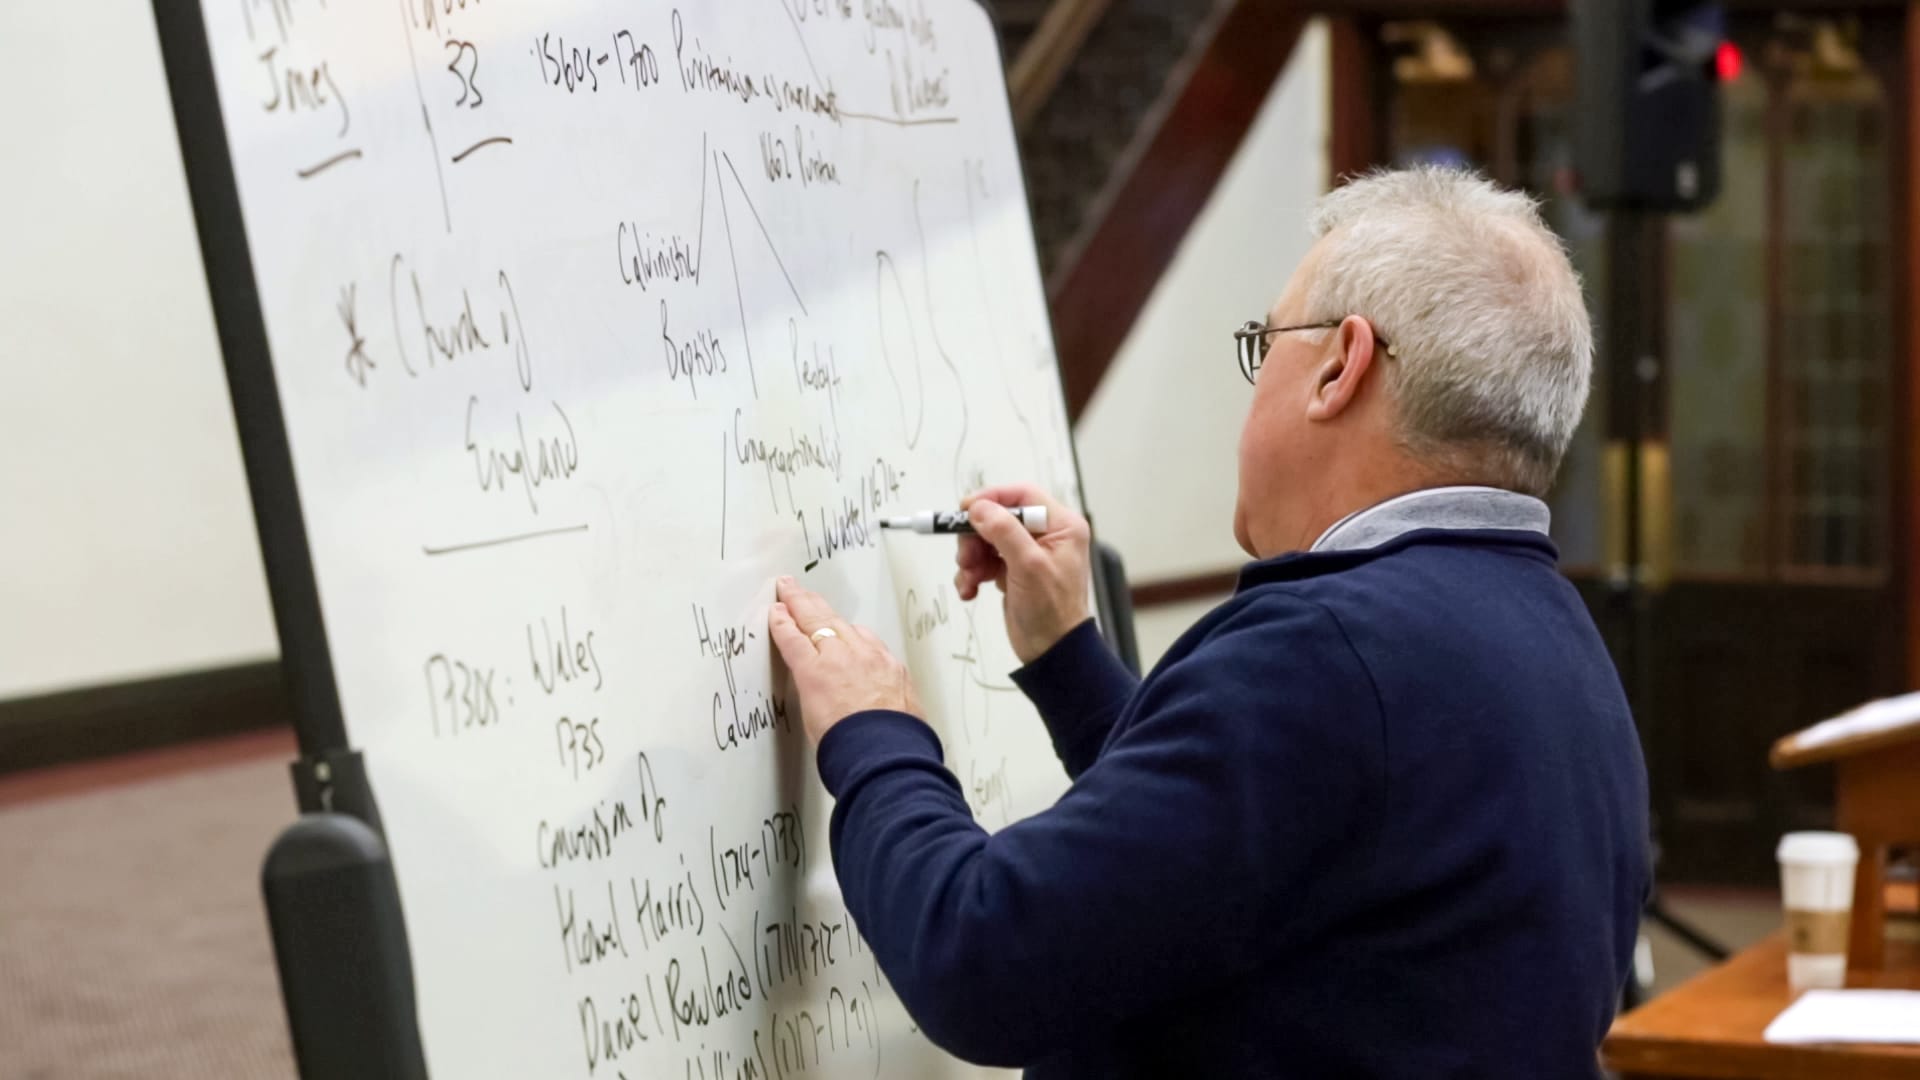 Jmes
33
1560s-1700 Puritanism as movement
1662 Puritan
Calvinistic
Baptists
Presbyt
* Church of
England
Congregationalist
I. Watts (1674-
1730s: Wales
1735
Hyper-
Calvinism
conversion of
Howel Harris (1714-1773)
Daniel Rowland (1711/1712-1
Williams (1717-1791)
Cornwall